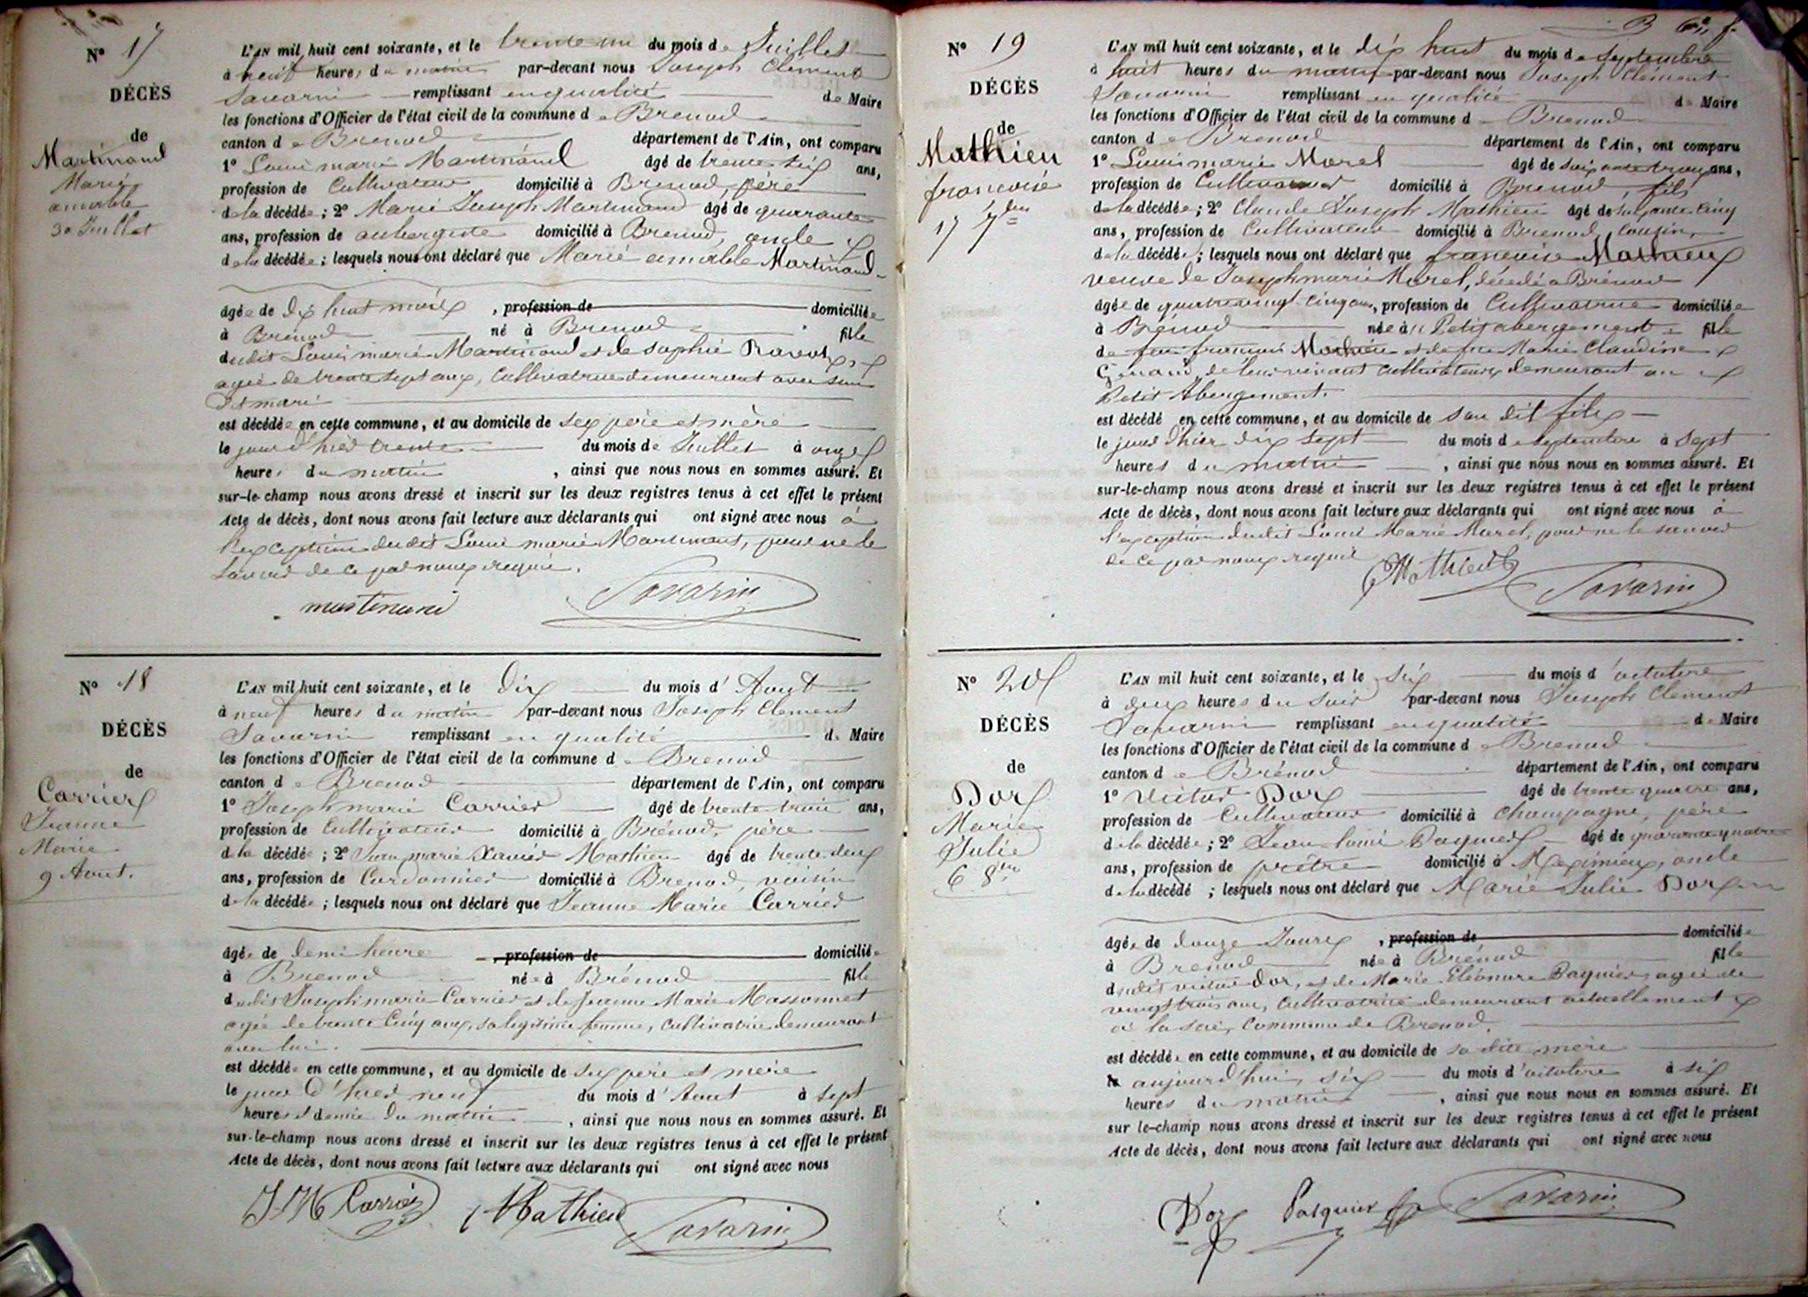 N° 17
DÉCÈS
de
Martinand
Marie
aimable
30 Juillet
L'AN mil huit cent soixante, et le trente un du mois de Juillet
à neuf heures du matin par-devant nous Joseph Clément
Savarin remplissant en qualité de Maire
les fonctions d'Officier de l'état civil de la commune de Brenod
canton de Brenod département de l'Ain, ont comparu
1° Louis marie Martinand âgé de trente six ans,
profession de Cultivateur domicilié à Brenod, père
de la décédée; 2° Marie Joseph Martinand âgé de quarante
ans, profession de aubergiste domicilié à Brenod, oncle
de la décédée; lesquels nous ont déclaré que Marie aimable Martinand
âgée de dix huit mois, profession de domiciliée
à Brenod né à Brenod fille
dudit Louis marie Martinand et de Sophie
agée de trente sept ans, Cultivatrice demeurant avec son
dit mari
est décédée en cette commune, et au domicile de ses père et mère
le jour d'hier trente du mois de Juillet à onze
heures du matin, ainsi que nous nous en sommes assuré. Et
sur-le-champ nous avons dressé et inscrit sur les deux registres tenus à cet effet le présent
Acte de décès, dont nous avons fait lecture aux déclarants qui ont signé avec nous à
l'exception dudit Louis marie Martinand, pour ne le
savoir de ce par nous requis.
martinand Savarin
N° 18
DÉCÈS
de
Carrier
Jeanne
Marie
9 Aout.
L'AN mil huit cent soixante, et le dix du mois d'Aout
à neuf heures du matin par-devant nous Joseph Clement
Savarin remplissant en qualité de Maire
les fonctions d'Officier de l'état civil de la commune de Brenod
canton de Brenod département de l'Ain, ont comparu
1° Joseph marie Carrier âgé de trente trois ans,
profession de Cultivateur domicilié à Brénod, père
de la décédée; 2° Jean marie Xavier Mathieu âgé de trente deux
ans, profession de Cordonnier domicilié à Brenod, voisin
de la décédée; lesquels nous ont déclaré que Jeanne Marie Carrier
âgée de demi heure, profession de domiciliée
à Brenod née à Brénod fille
dudit Joseph marie Carrier et de Jeanne Marie Massonnet
agée de trente Cinq ans, sa légitime femme, Cultivatrice demeurant
avec lui.
est décédée en cette commune, et au domicile de ses père et mère
le jour d'hier neuf du mois d'Aout à sept
heures et demie du matin, ainsi que nous nous en sommes assuré. Et
sur-le-champ nous avons dressé et inscrit sur les deux registres tenus à cet effet le présent
Acte de décès, dont nous avons fait lecture aux déclarants qui ont signé avec nous
J M Carrier Mathieu Savarin
N° 19
DÉCÈS
de
Mathieu
françoise
17 7bre
L'AN mil huit cent soixante, et le dix huit du mois de Septembre
à huit heures du matin par-devant nous Joseph Clément
Savarin remplissant en qualité de Maire
les fonctions d'Officier de l'état civil de la commune de Brenod
canton de Brenod département de l'Ain, ont comparu
1° Louis marie Morel âgé de soixante trois ans,
profession de Cultivateur domicilié à Brenod, fils
de la décédée; 2° Claude Joseph Mathieu âgé de soixante cinq
ans, profession de Cultivateur domicilié à Brenod, Cousin,
de la décédée; lesquels nous ont déclaré que françoise Mathieu
veuve de Joseph marie Morel, décédé à Brénod
âgée de quatre vingt cinq ans, profession de Cultivatrice domiciliée
à Brenod née à Petit abergement fille
de feu françois Mathieu et de feu Marie Claudine
de leur vivant cultivateurs demeurant au
Petit Abergement.
est décédé en cette commune, et au domicile de son dit fils
le jour d'hier dix sept du mois de septembre à sept
heures du matin, ainsi que nous nous en sommes assuré. Et
sur-le-champ nous avons dressé et inscrit sur les deux registres tenus à cet effet le présent
Acte de décès, dont nous avons fait lecture aux déclarants qui ont signé avec nous à
l'exception dudit Louis Marie Morel, pour ne le savoir
de ce par nous requis
Mathieu Savarin
N° 20
DÉCÈS
de
Dor
Marie
Julie
6 8bre
L'AN mil huit cent soixante, et le six du mois d'octobre
à deux heures du soir par-devant nous Joseph Clement
Savarin remplissant en qualité de Maire
les fonctions d'Officier de l'état civil de la commune de Brenod
canton de Brénod département de l'Ain, ont comparu
1° Victor Dor âgé de trente quatre ans,
profession de Cultivateur domicilié à Champagne, père
de la décédée; 2° Jean Louis Pasquier âgé de quarante quatre
ans, profession de prêtre domicilié à Meximieux, oncle
de la décédé; lesquels nous ont déclaré que Marie Julie Dor
âgée de douze Jours, profession de domiciliée
à Brenod née à Brénod fille
dudit victor Dor, et de Marie Eléonore Pasquier agée de
vingt trois ans, Cultivatrice demeurant actuellement
à la scie, Commune de Brenod.
est décédée en cette commune, et au domicile de sa dite mère
le aujourd'hui six du mois d'octobre à six
heures du matin, ainsi que nous nous en sommes assuré. Et
sur le-champ nous avons dressé et inscrit sur les deux registres tenus à cet effet le présent
Acte de décès, dont nous avons fait lecture aux déclarants qui ont signé avec nous
Dor Pasquier Savarin